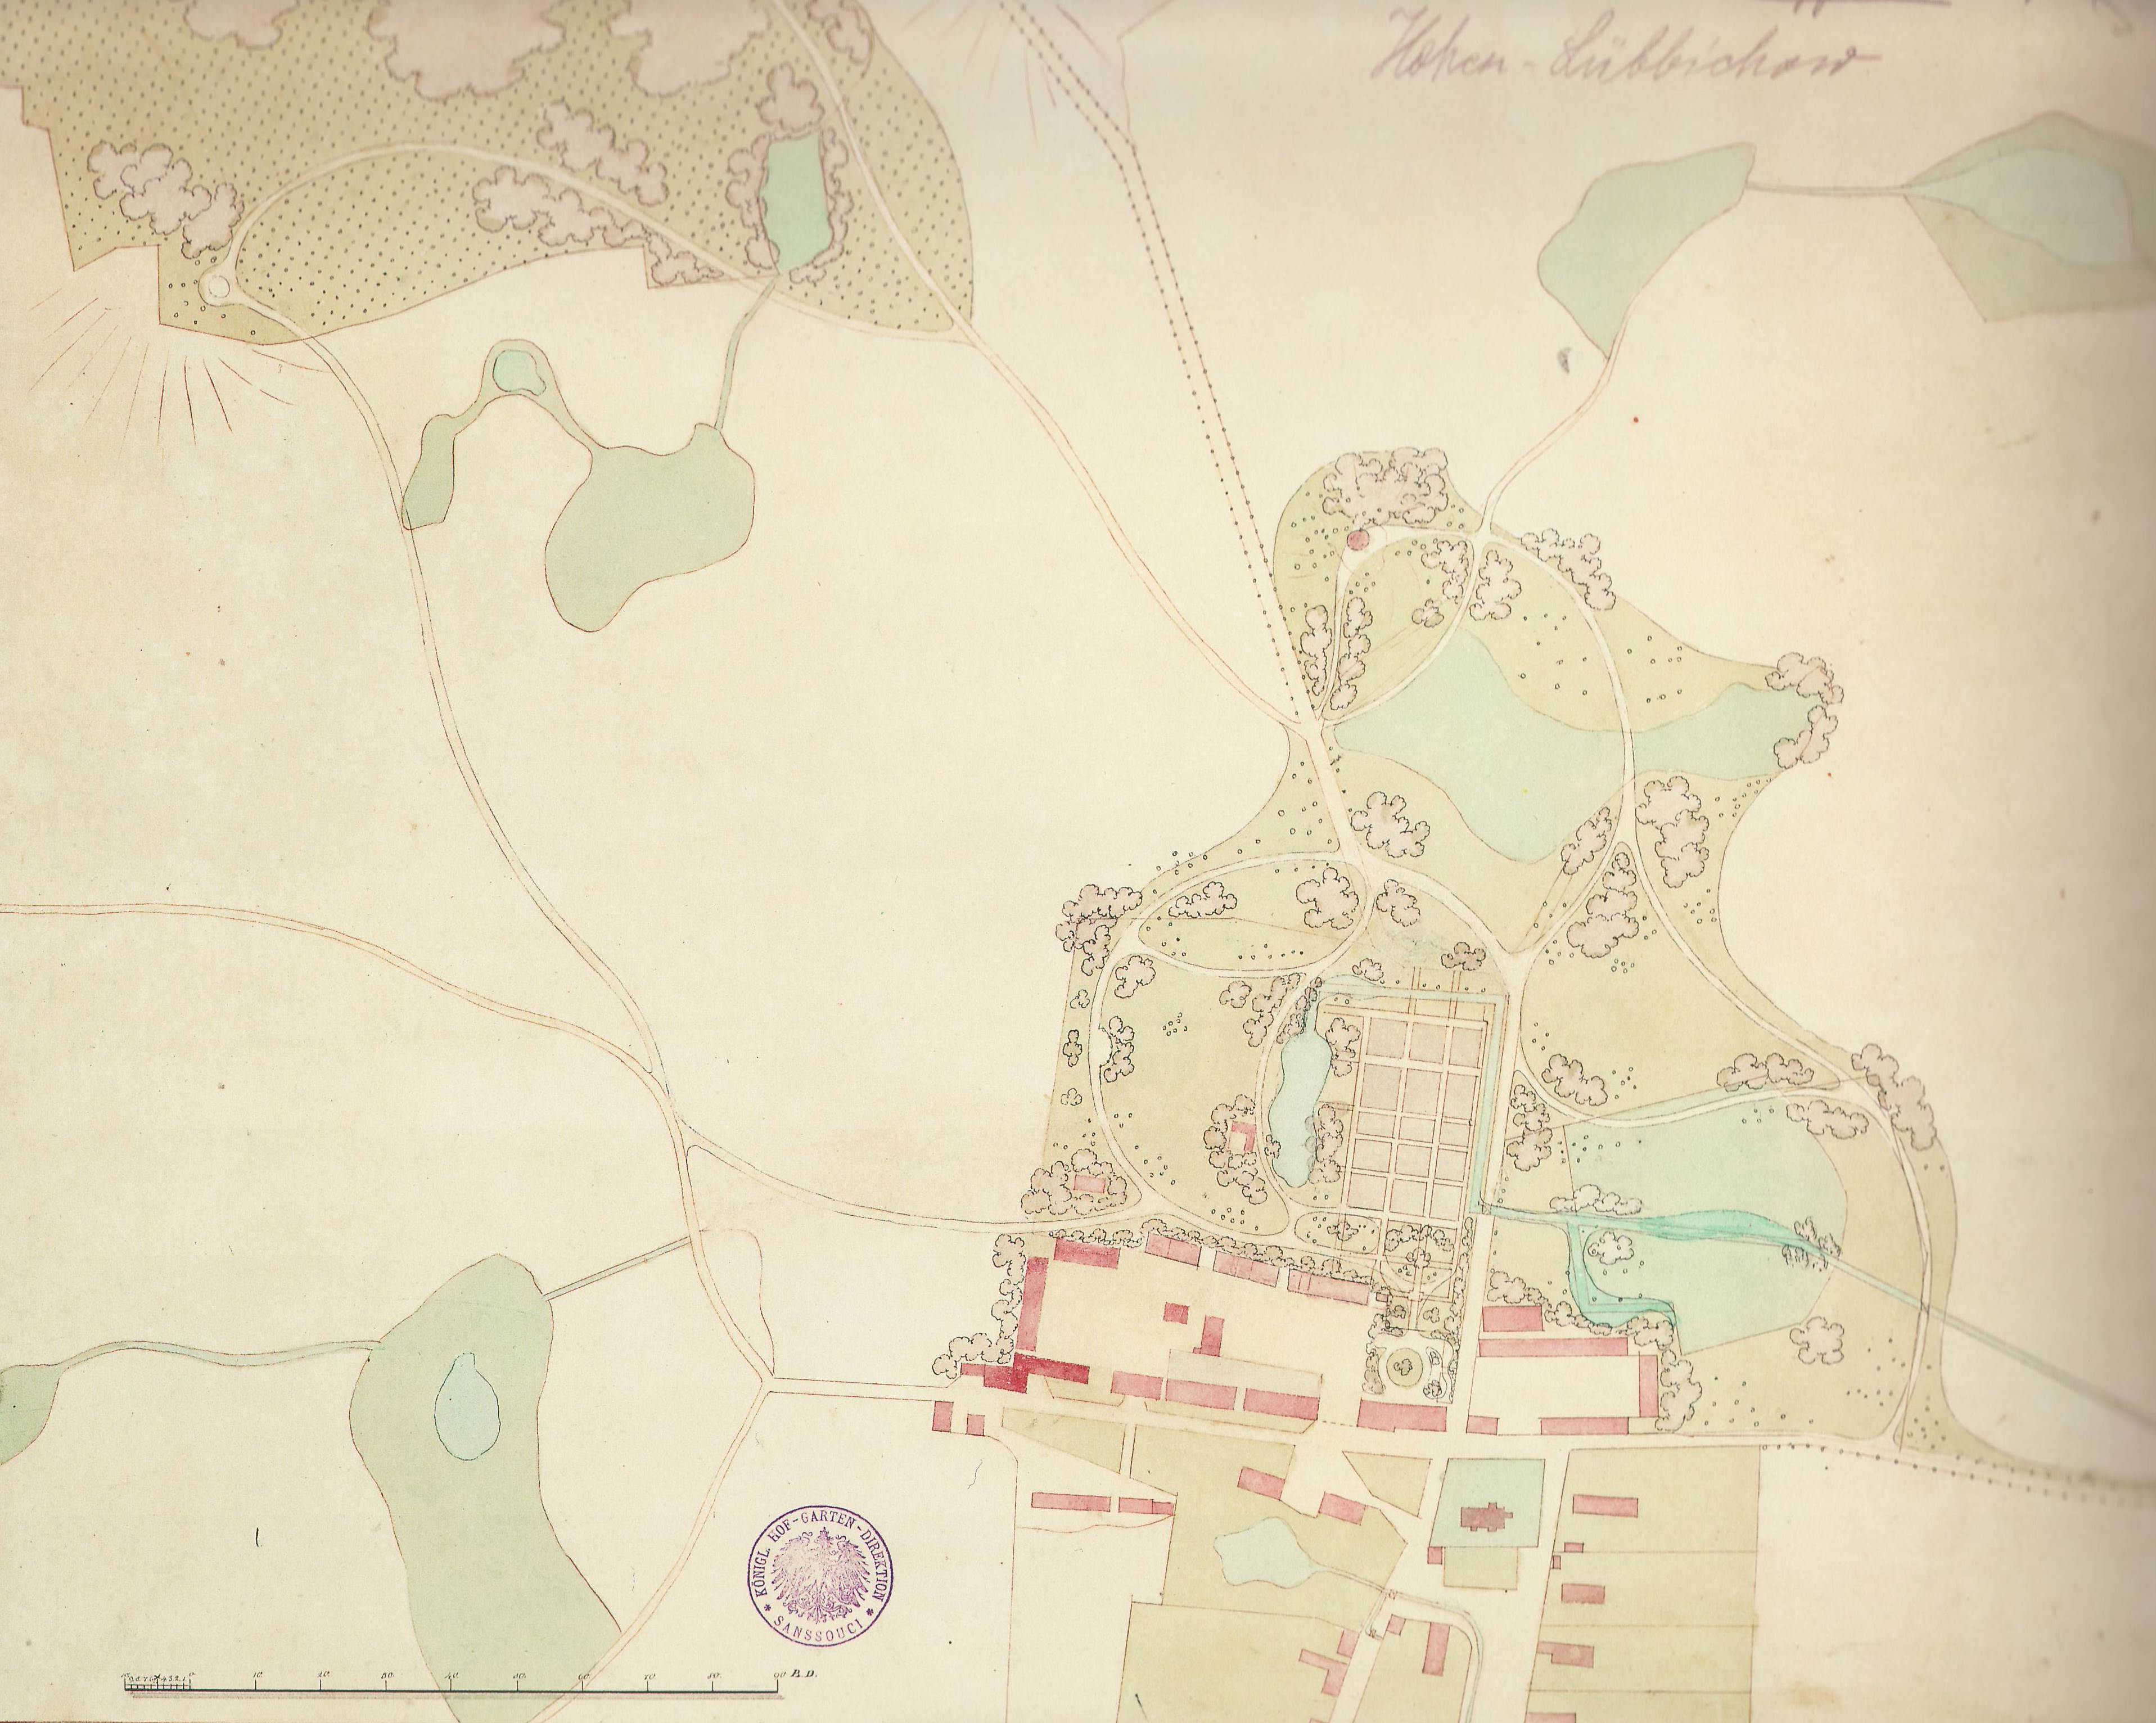 Hohen-Lübbichow
KÖNIGL. HOF-GARTEN-DIREKTION
* SANSSOUCI *
10. 20. 30. 40. 50. 60. 70. 80. 90 R.D.